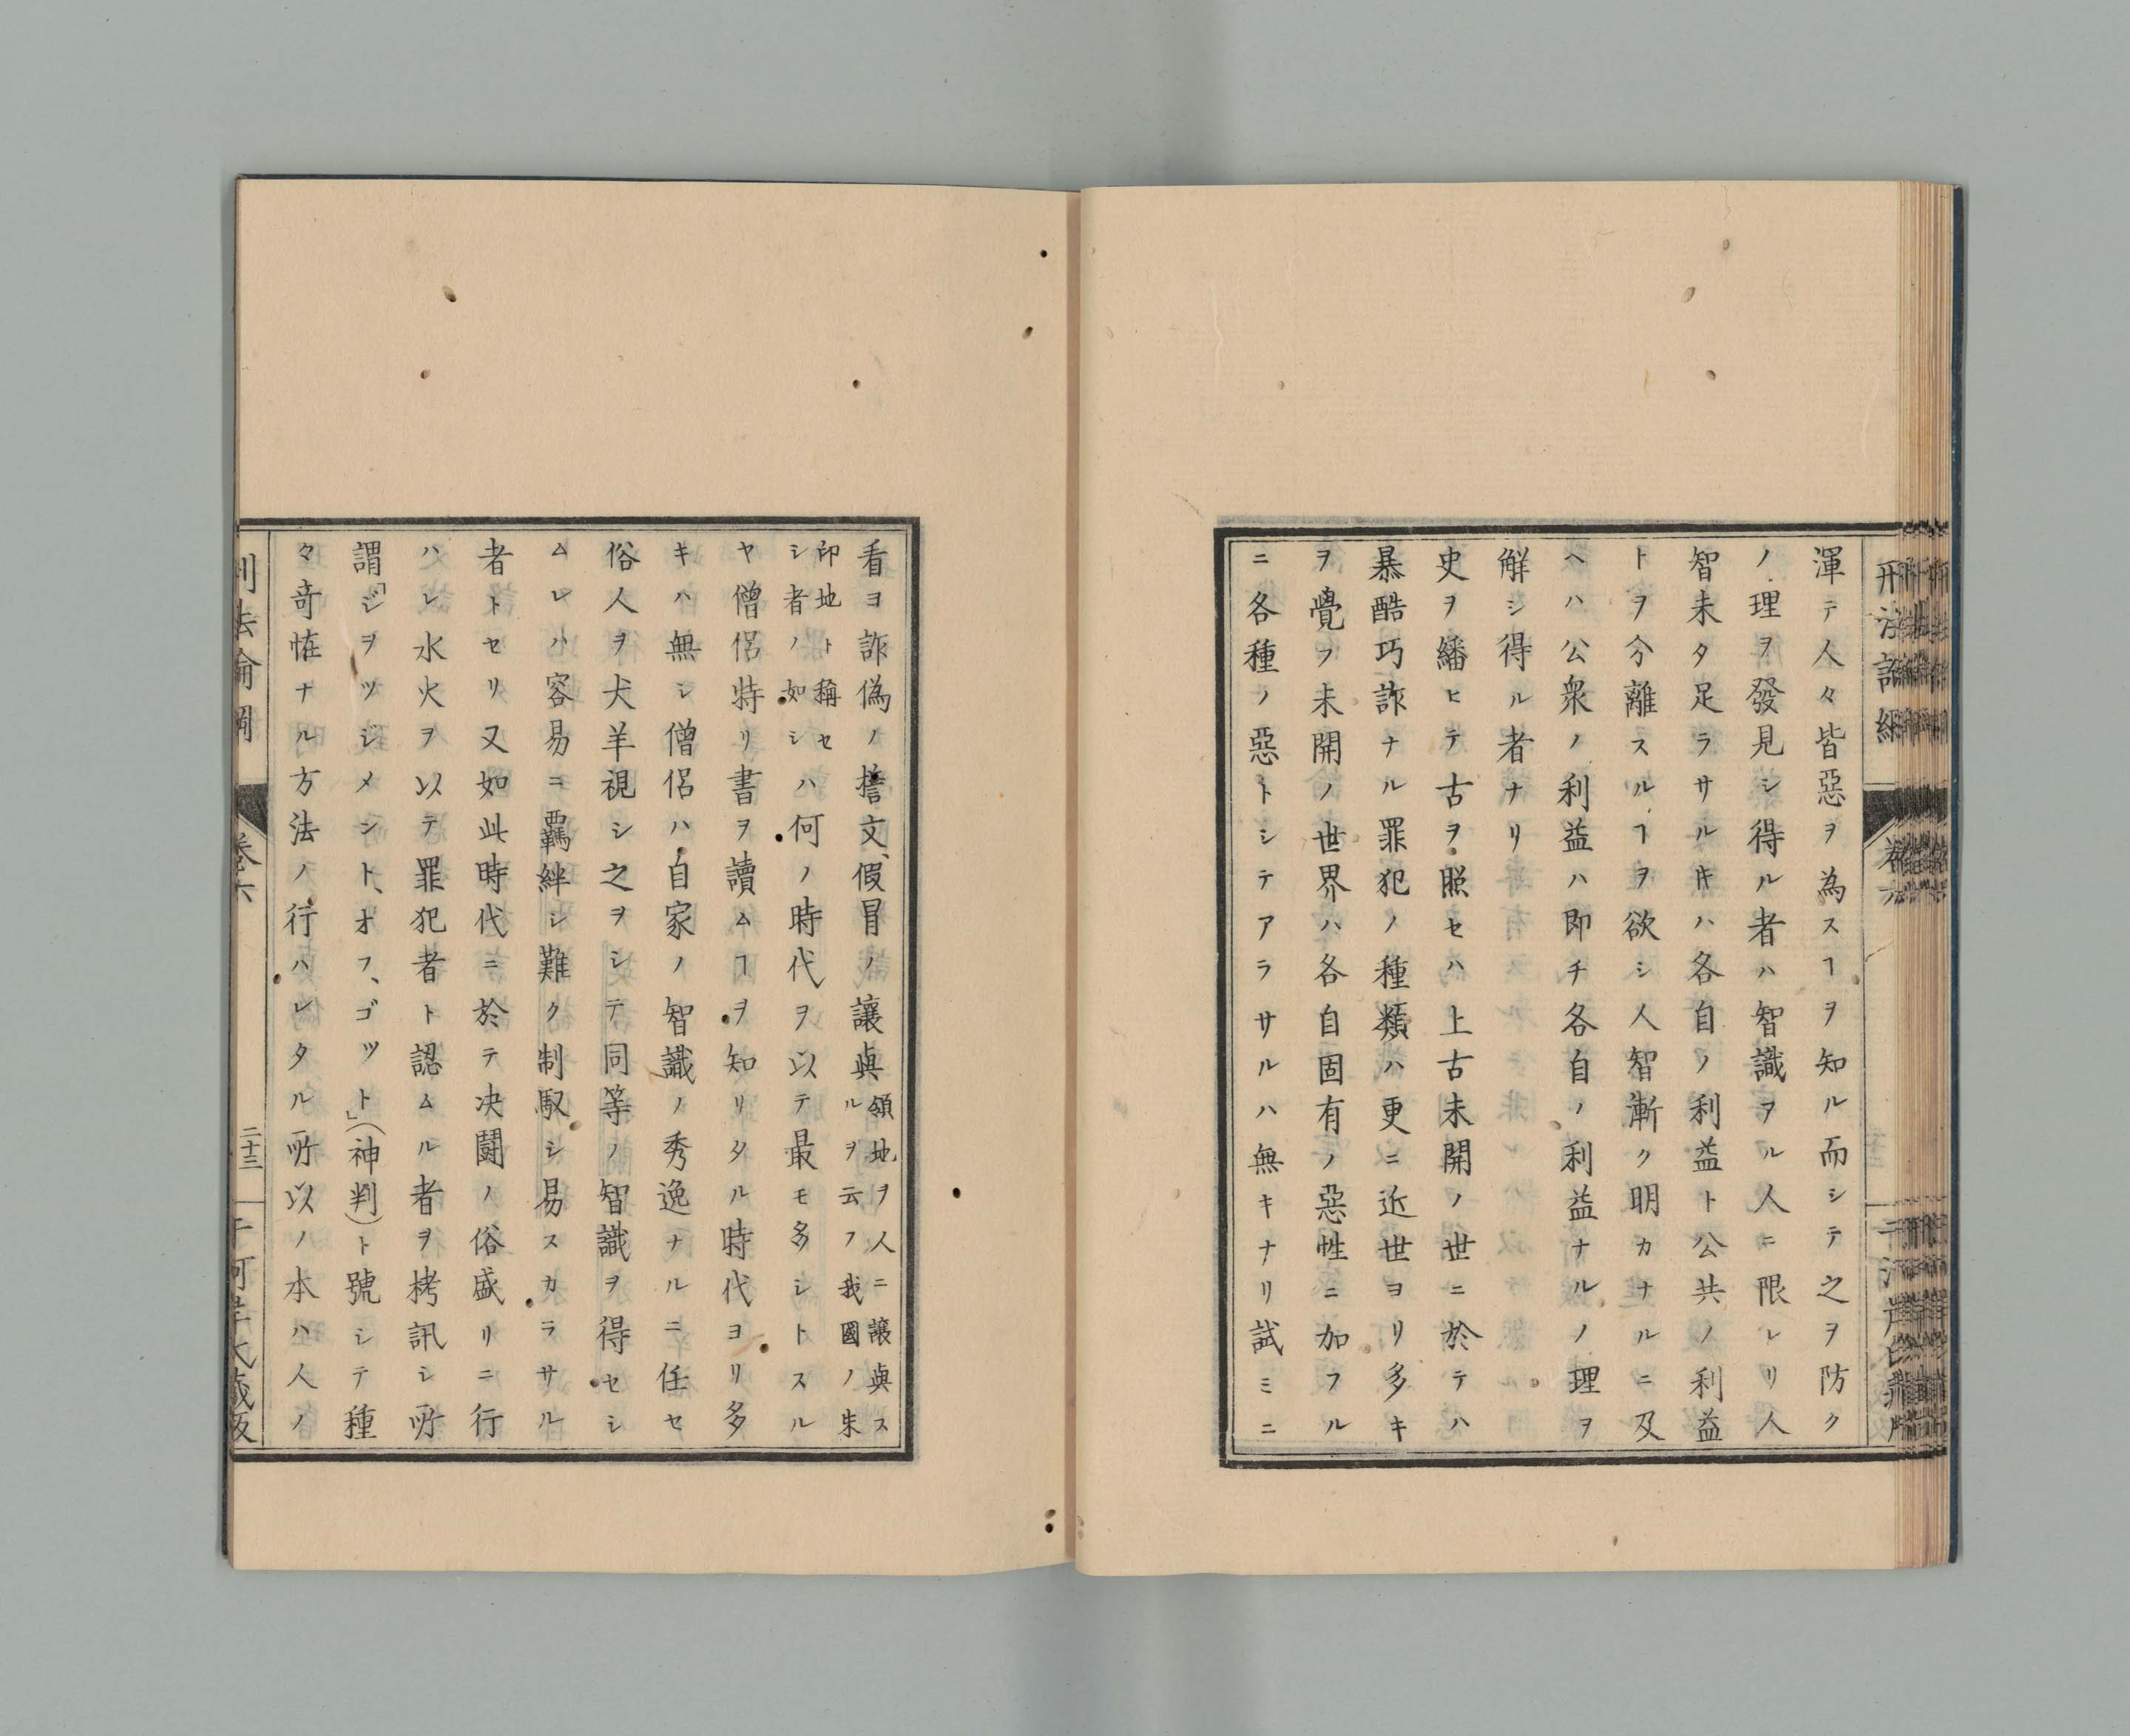 渾テ人々皆惡ヲ為スヿヲ知ル而シテ之ヲ防ク
ノ理ヲ發見シ得ル者ハ智識ヲル人ニ限レリ人
智未タ足ラサルキハ各自ノ利益ト公共ノ利益
トヲ分離スルヿヲ欲シ人智漸ク明カナルニ及
ヘハ公衆ノ利益ハ即チ各自ノ利益ナルノ理ヲ
解シ得ル者ナリ
史ヲ繙ヒテ古ヲ照セハ上古未開ノ世ニ於テハ
暴酷巧詐ナル罪犯ノ種類ハ更ニ近世ヨリ多キ
ヲ覺フ未開ノ世界ハ各自固有ノ惡性ニ加フル
ニ各種ノ惡トシテアラサルハ無キナリ試ミニ
看ヨ詐偽ノ擔文、假冒ノ讓與領地ヲ人ニ讓與ス
ルヲ云フ我國ノ朱
印地ト稱セ
シ者ノ如シハ何ノ時代ヲ以テ最モ多シトスル
ヤ僧侶特リ書ヲ讀ムヿヲ知リタル時代ヨリ多
キハ無シ僧侶ハ自家ノ智識ノ秀逸ナルニ任セ
俗人ヲ犬羊視シ之ヲシテ同等ノ智識ヲ得セシ
ムレハ容易ニ羈絆シ難ク制馭シ易スカラサル
者トセリ又如此時代ニ於テ决闘ノ俗盛リニ行
ハレ水火ヲ以テ罪犯者ト認ムル者ヲ拷訊シ所
謂「ジヲツジメント、オフ、ゴツト」(神判)ト號シテ種
々竒恠ナル方法ノ行ハレタル所以ノ本ハ人ノ
刑法論綱
卷六
二十三